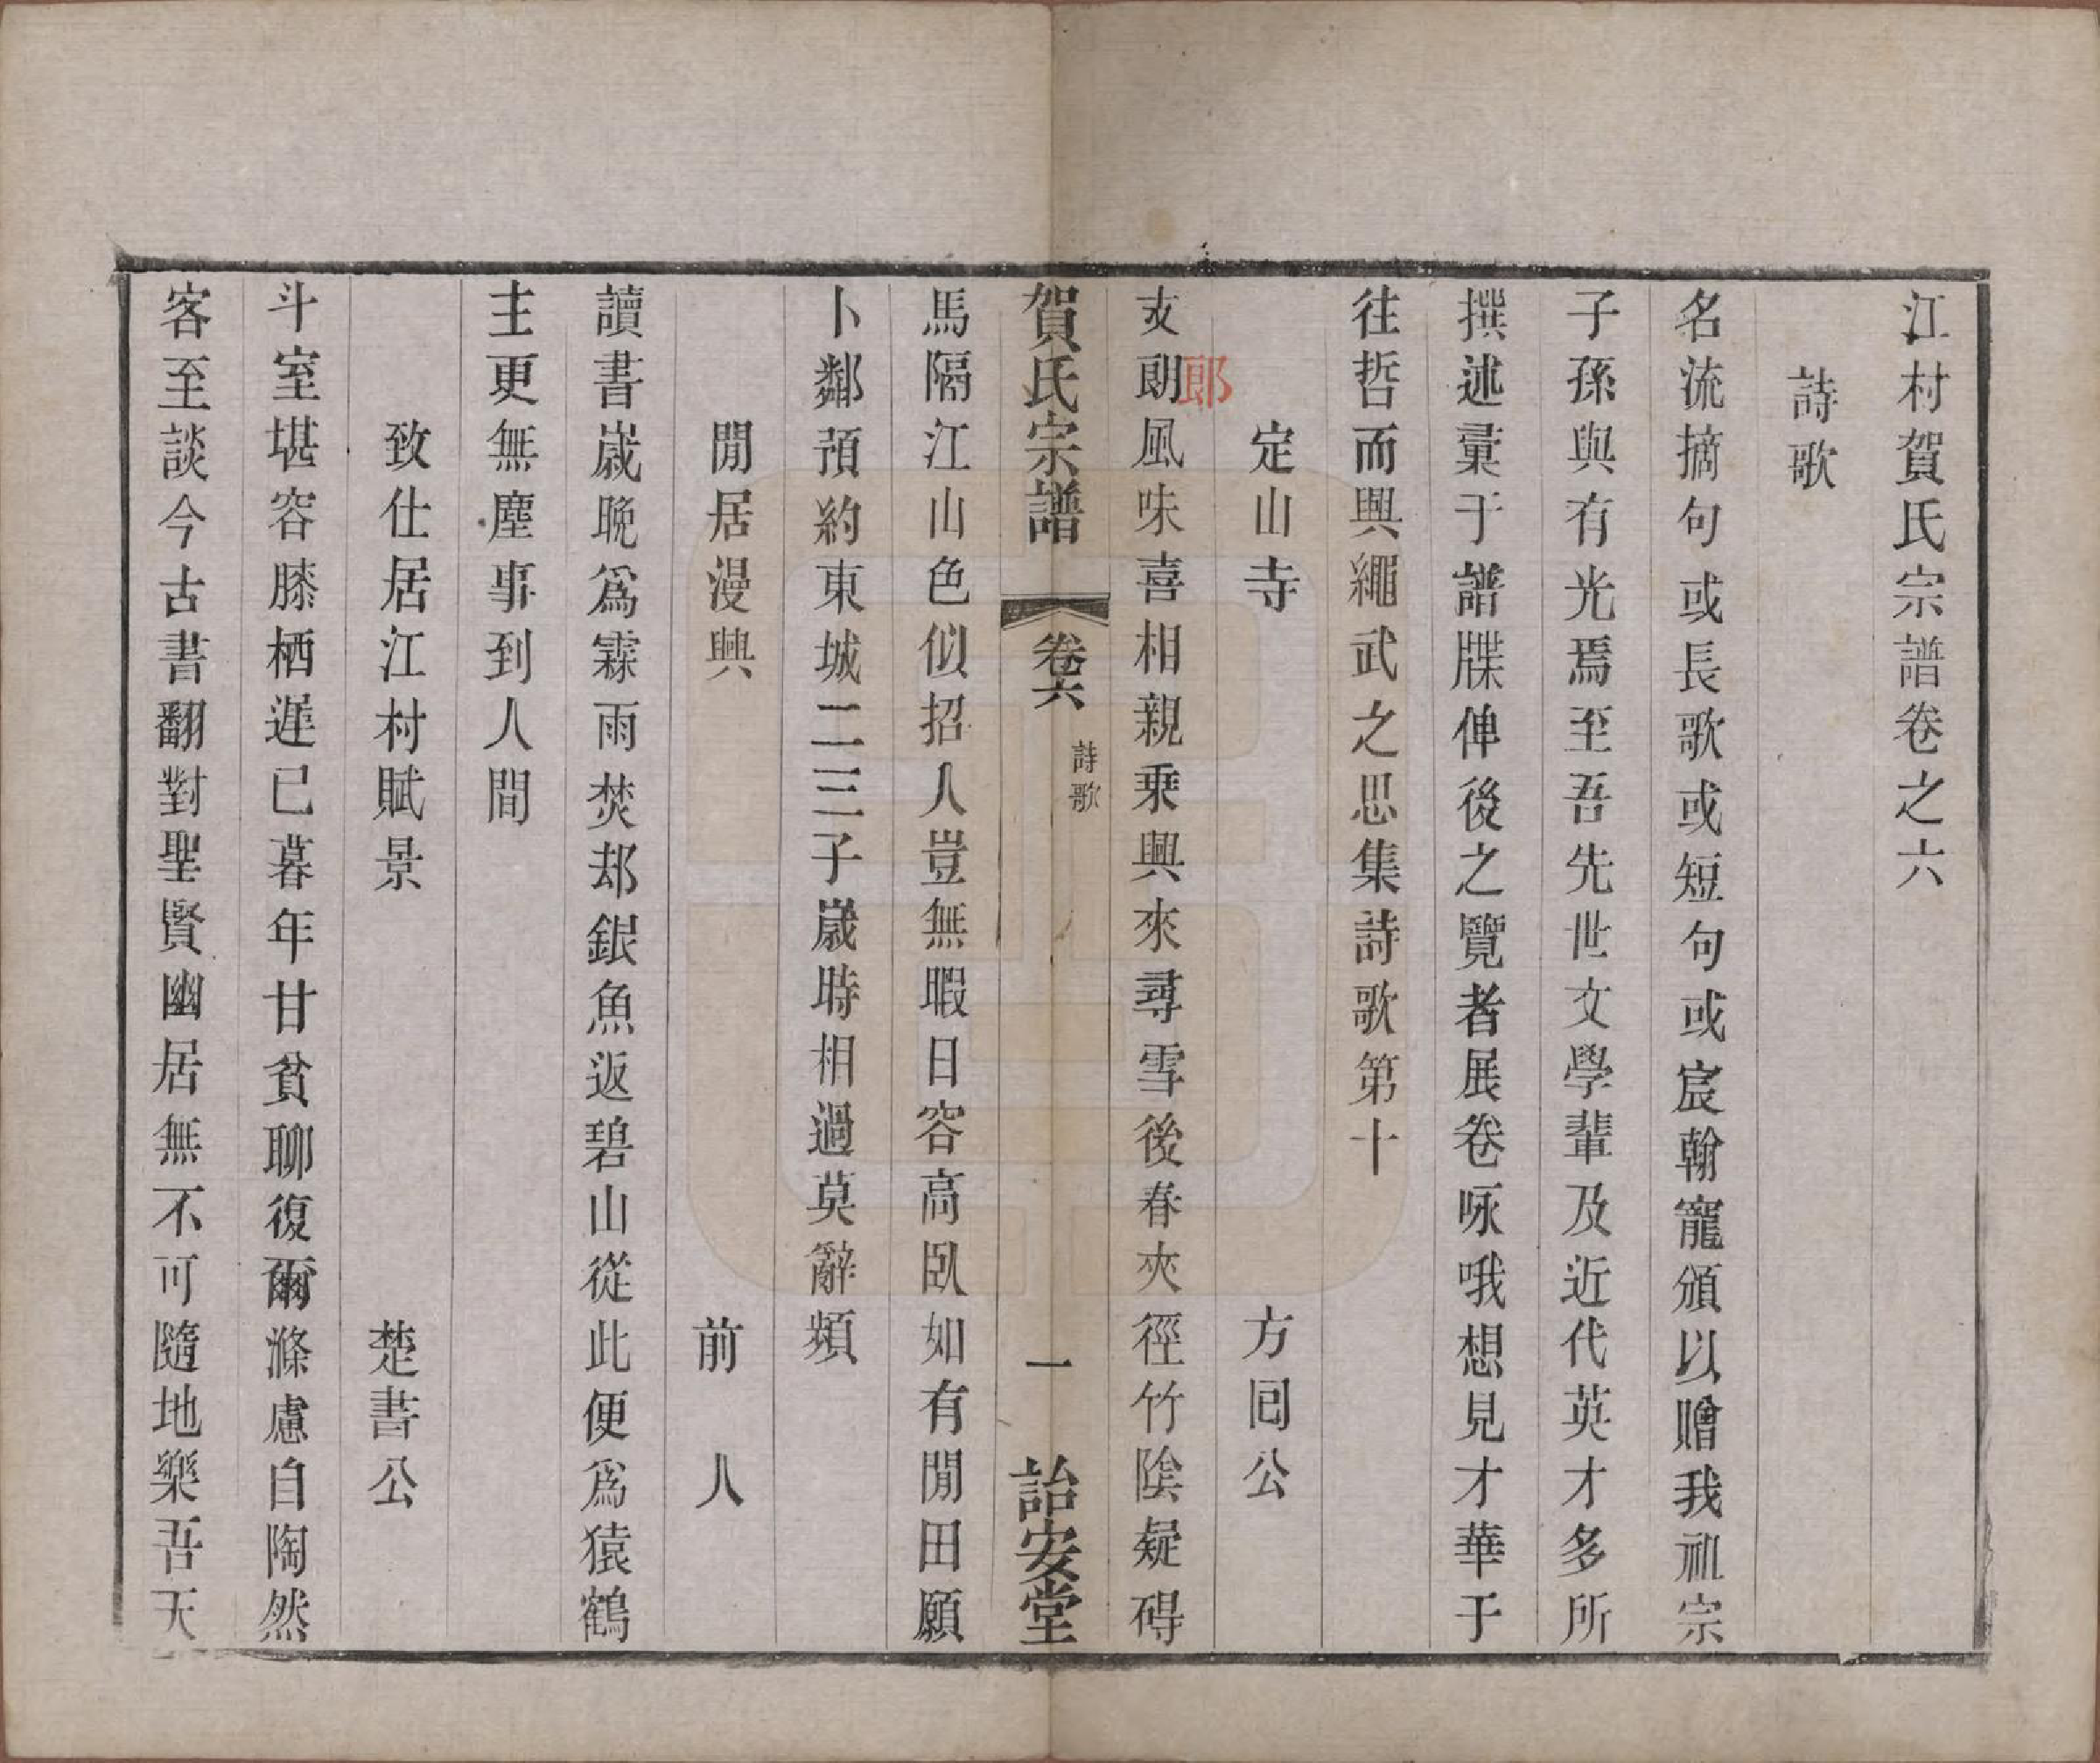 江村賀氏宗譜卷之六
詩歌
名流摘句或長歌或短句或宸翰寵頒以贈我祖宗
子孫與有光焉至吾先世文學輩及近代英才多所
撰述彙于譜牒俾後之覽者展卷咏哦想見才華于
往哲而興繩武之思集詩歌第十
定山寺 方囘公
支朗風味喜相親乗興來尋雪後春夾徑竹陰疑碍
郎
賀氏宗譜 卷六 詩歌 一 詒安堂
馬隔江山色似招人豈無暇日容高臥如有閒田願
卜鄰預約東城二三子歲時相過莫辭頻
閒居漫興 前人
讀書歲晚爲霖雨焚却銀魚返碧山從此便爲猿鶴
主更無塵事到人間
致仕居江村賦景 楚書公
斗室堪容膝栖遲已暮年甘貧聊復爾滌慮自陶然
客至談今古書翻對聖賢幽居無不可隨地樂吾天